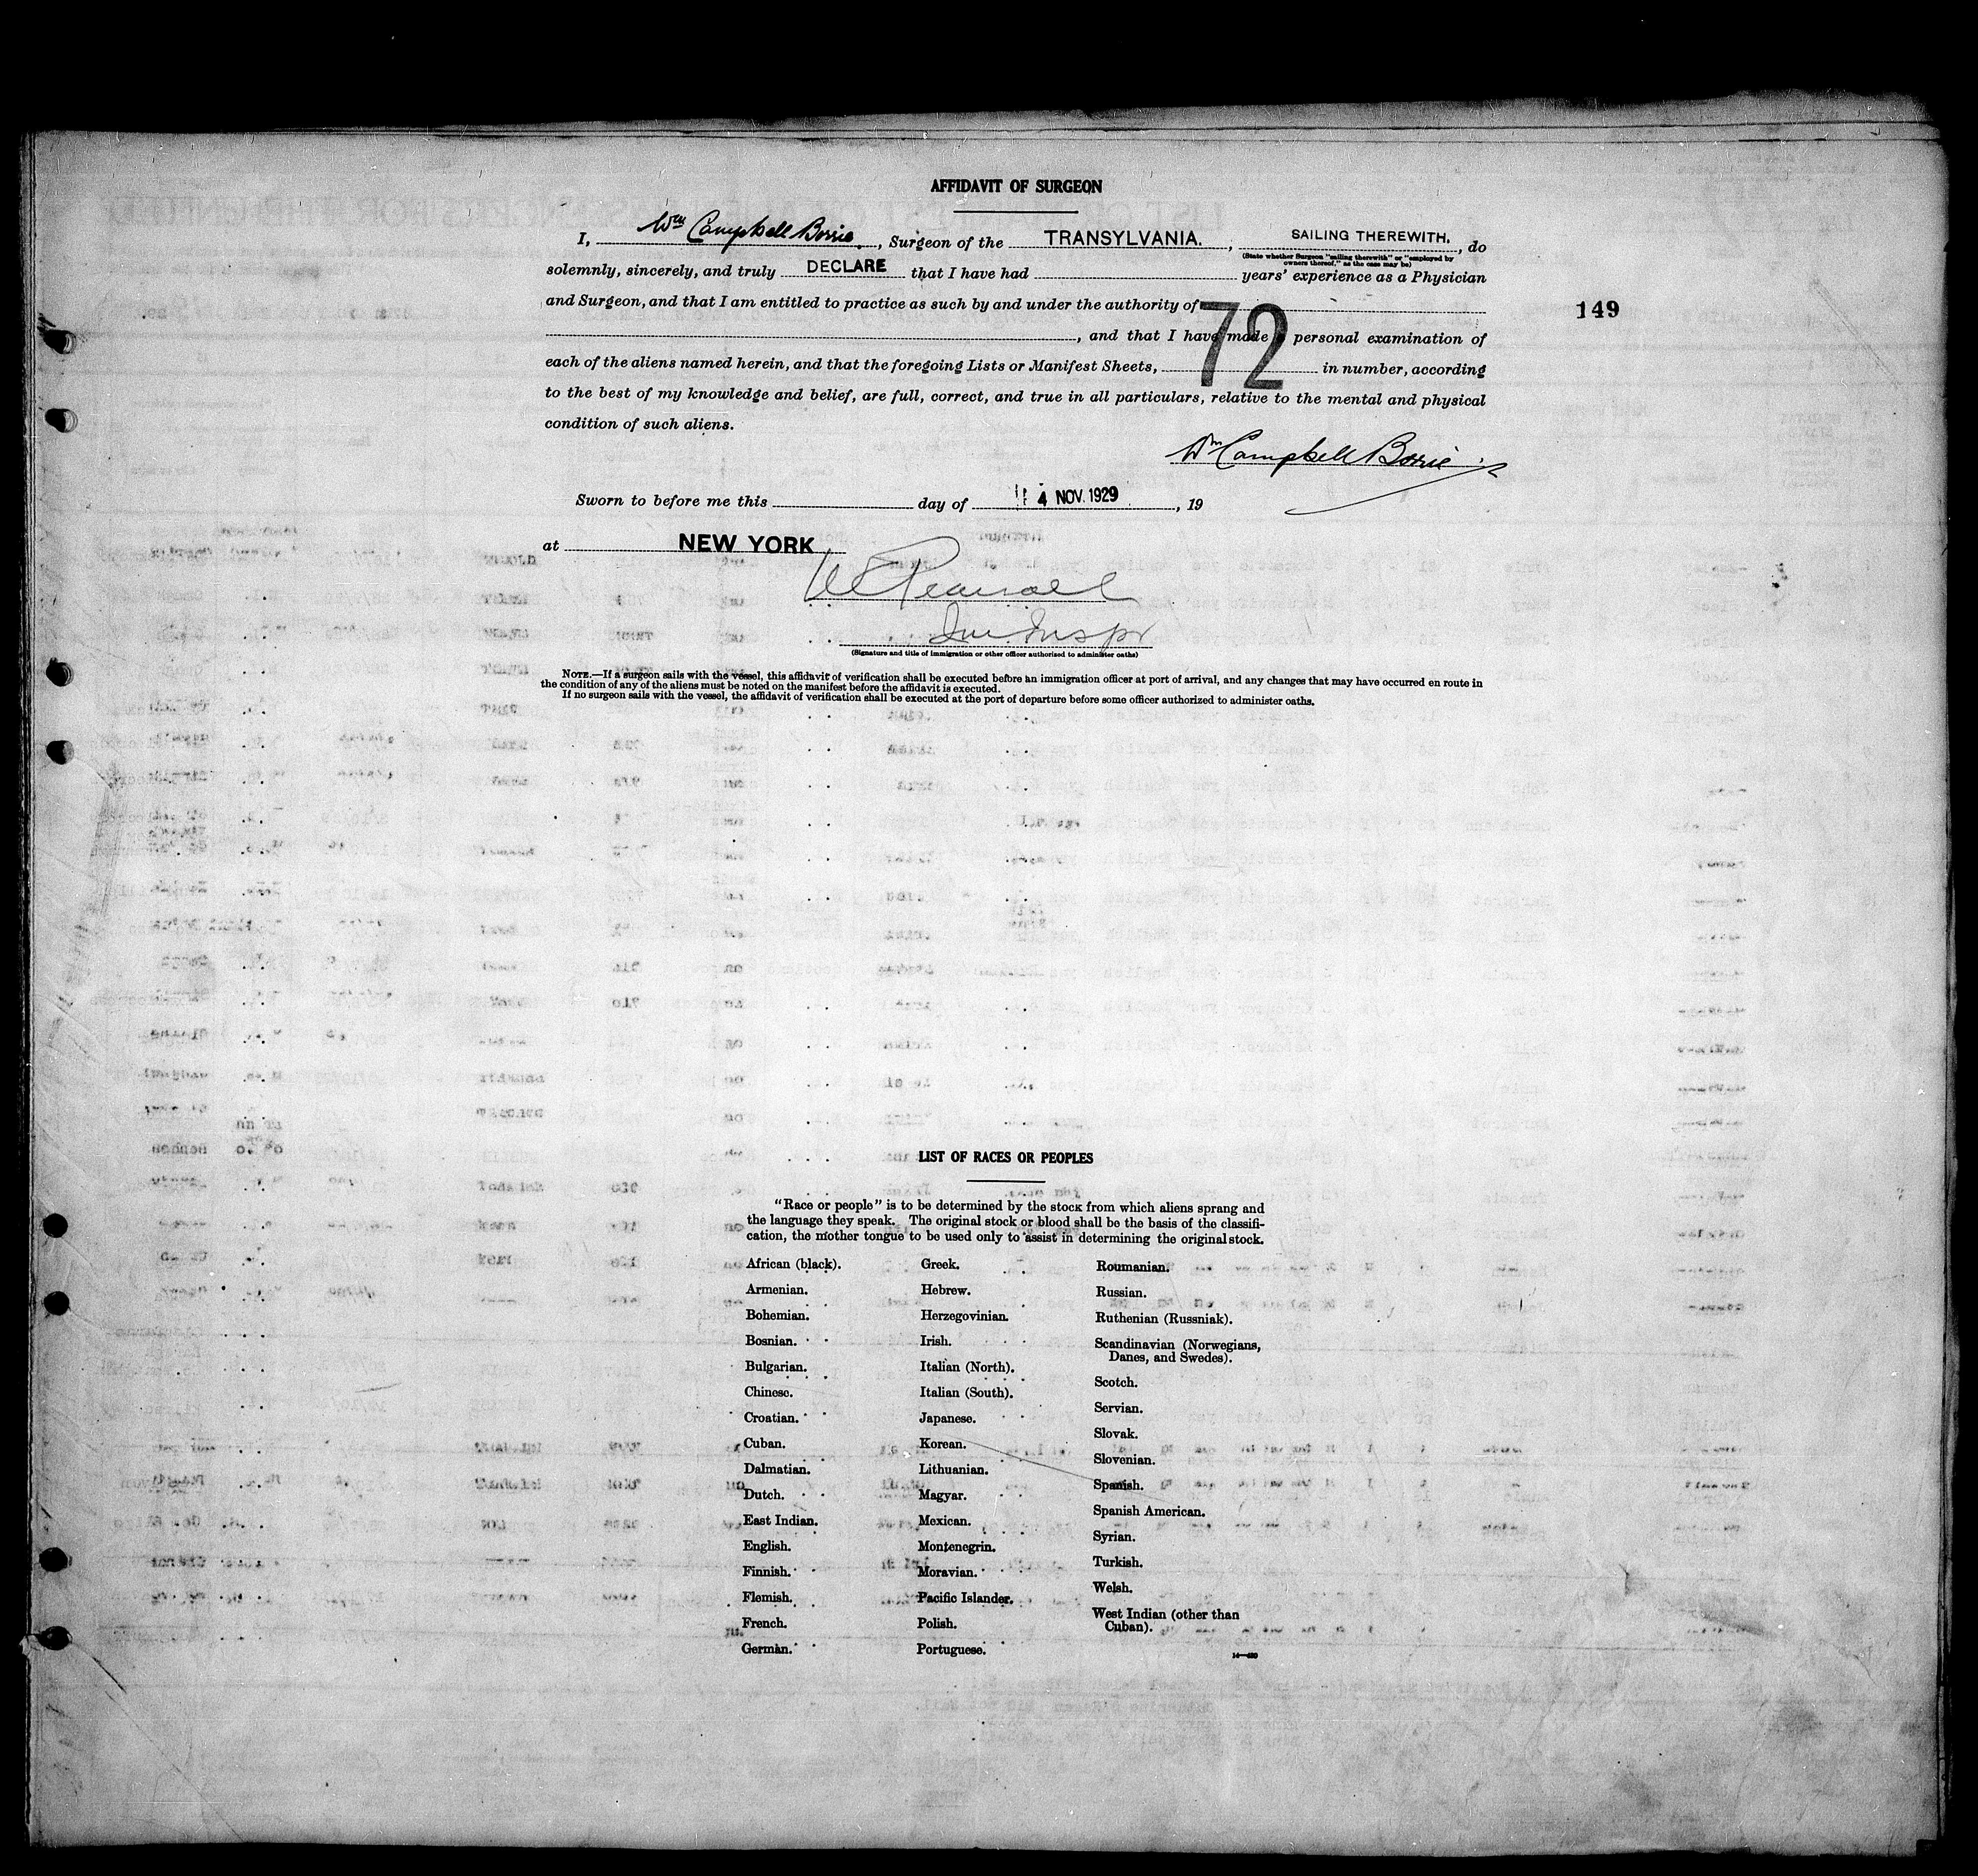 AFFIDAVIT OF SURGEON
I, Wm Campbell Borrie, Surgeon of the TRANSYLVANIA., SAILING THEREWITH., do
(State whether Surgeon "sailing therewith" or "employed by
owners thereof," as the case may be)
solemnly, sincerely, and truly DECLARE that I have had years' experience as a Physician
and Surgeon, and that I am entitled to practice as such by and under the authority of
149
, and that I have made personal examination of
72
each of the aliens named herein, and that the foregoing Lists or Manifest Sheets, in number, according
to the best of my knowledge and belief, are full, correct, and true in all particulars, relative to the mental and physical
condition of such aliens.
Wm Campbell Borrie
Sworn to before me this day of 4 NOV. 1929, 19
at NEW YORK
Imm Inspr
(Signature and title of immigration or other officer authorized to administer oaths)
NOTE.—If a surgeon sails with the vessel, this affidavit of verification shall be executed before an immigration officer at port of arrival, and any changes that may have occurred en route in
the condition of any of the aliens must be noted on the manifest before the affidavit is executed.
If no surgeon sails with the vessel, the affidavit of verification shall be executed at the port of departure before some officer authorized to administer oaths.
LIST OF RACES OR PEOPLES
"Race or people" is to be determined by the stock from which aliens sprang and
the language they speak. The original stock or blood shall be the basis of the classifi-
cation, the mother tongue to be used only to assist in determining the original stock.
African (black).
Armenian.
Bohemian.
Bosnian.
Bulgarian.
Chinese.
Croatian.
Cuban.
Dalmatian.
Dutch.
East Indian.
English.
Finnish.
Flemish.
French.
German.
Greek.
Hebrew.
Herzegovinian.
Irish.
Italian (North).
Italian (South).
Japanese.
Korean.
Lithuanian.
Magyar.
Mexican.
Montenegrin.
Moravian.
Pacific Islander.
Polish.
Portuguese.
Roumanian.
Russian.
Ruthenian (Russniak).
Scandinavian (Norwegians,
Danes, and Swedes).
Scotch.
Servian.
Slovak.
Slovenian.
Spanish.
Spanish American.
Syrian.
Turkish.
Welsh.
West Indian (other than
Cuban).
14—430